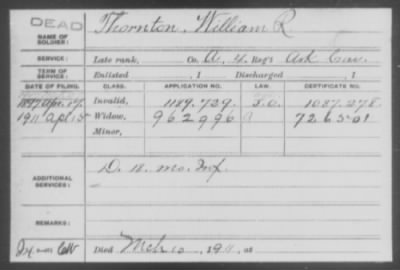 DEAD
NAME OF SOLDIER: Thornton, William R
SERVICE: Late rank, Co. A, 4, Reg't Ark Cav.
TERM OF SERVICE: Enlisted , 1 Discharged , 1
DATE OF FILING. CLASS. APPLICATION NO. LAW. CERTIFICATE NO.
1897 Apr. 17. Invalid, 1189.729. 1087.278.
1911 Apl 15 Widow, 962996 726501
Minor,
ADDITIONAL SERVICES: D. 11. Mo. Inf.
REMARKS:
Died Mch 10, 1911, at